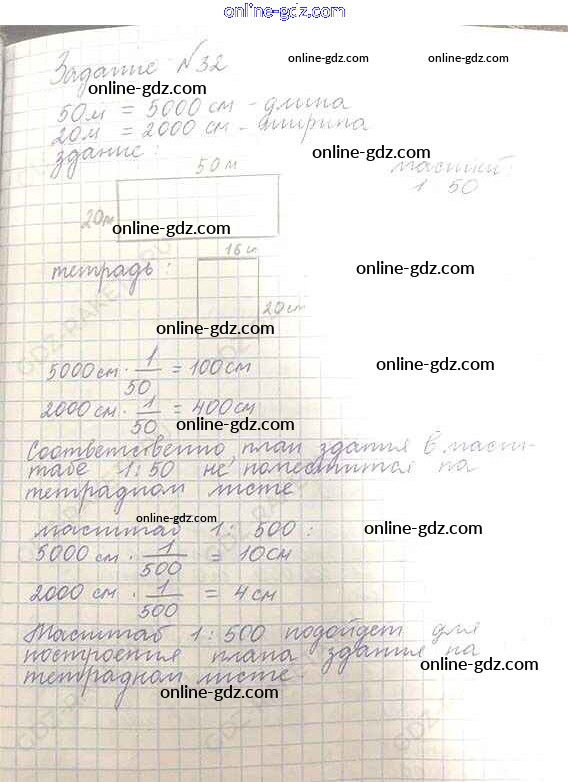 online-gdz.com
Задание №32
online-gdz.com
online-gdz.com
online-gdz.com
50м = 5000 см - длина
20м = 2000 см - ширина
здание:
online-gdz.com
50м
масштаб:
1 : 50
20м
online-gdz.com
16 см
тетрадь:
online-gdz.com
20 см
online-gdz.com
5000 см · 1/50 = 100 см
online-gdz.com
2000 см · 1/50 = 400 см
online-gdz.com
Соответственно, план здания в масш-
табе 1:50 не поместится на
тетрадном листе
online-gdz.com
масштаб 1 : 500 :
online-gdz.com
5000 см · 1/500 = 10 см
2000 см · 1/500 = 4 см
Масштаб 1:500 подойдет для
построения плана здания на
online-gdz.com
тетрадном листе.
online-gdz.com